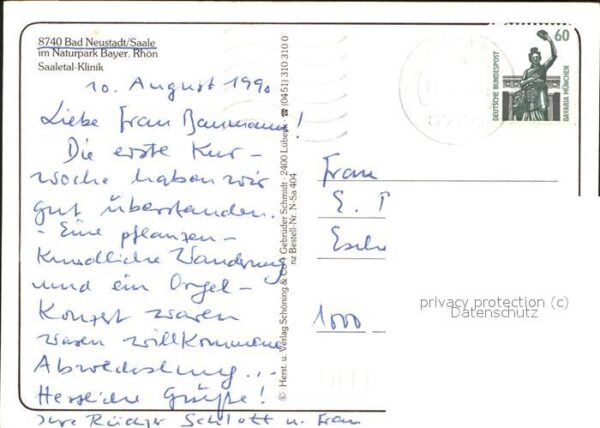 8740 Bad Neustadt/Saale
im Naturpark Bayer. Rhön
Saaletal-Klinik
10. August 1990
Liebe Frau Baumann!
Die erste Kur-
woche haben wir
gut überstanden.
- Eine pflanzen-
kundliche Wanderung
und ein Orgel-
Konzert waren
waren willkommene
Abwechslung...
Herzliche Grüße!
Ihre Rüdiger Schlott u. Frau
© Herst. u. Verlag Schöning & Co + Gebrüder Schmidt · 2400 Lübeck ☎ (0451) 310 310 0
nz Bestell-Nr. N-Sa 404
60
DEUTSCHE BUNDESPOST
BAVARIA MÜNCHEN
Frau
E.
Esch
1000
privacy protection (c)
Datenschutz